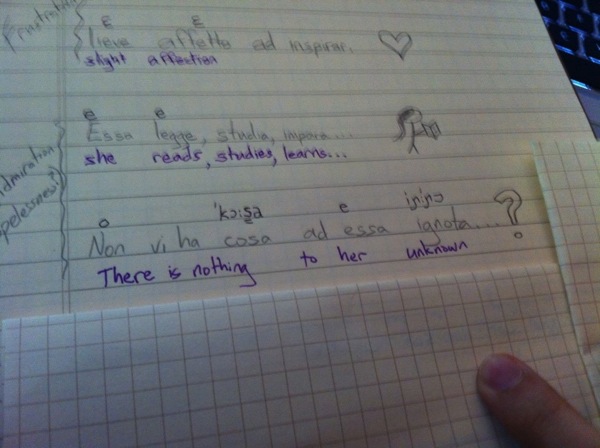 ɛ ɛ
lieve affetto ad inspirar.
slight affection
e e
Essa legge, studia, impara...
she reads, studies, learns...
dmiration
pelessness
o 'kɔ:sa e iɲ'ɲɔ
Non vi ha cosa ad essa ignota...?
There is nothing to her unknown